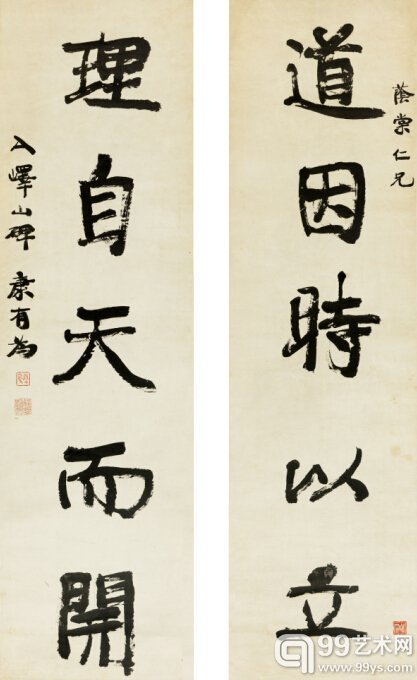 蔭棠仁兄
道因時以立
理自天而開
入嶧山碑 康有為
99艺术网
www.99ys.com